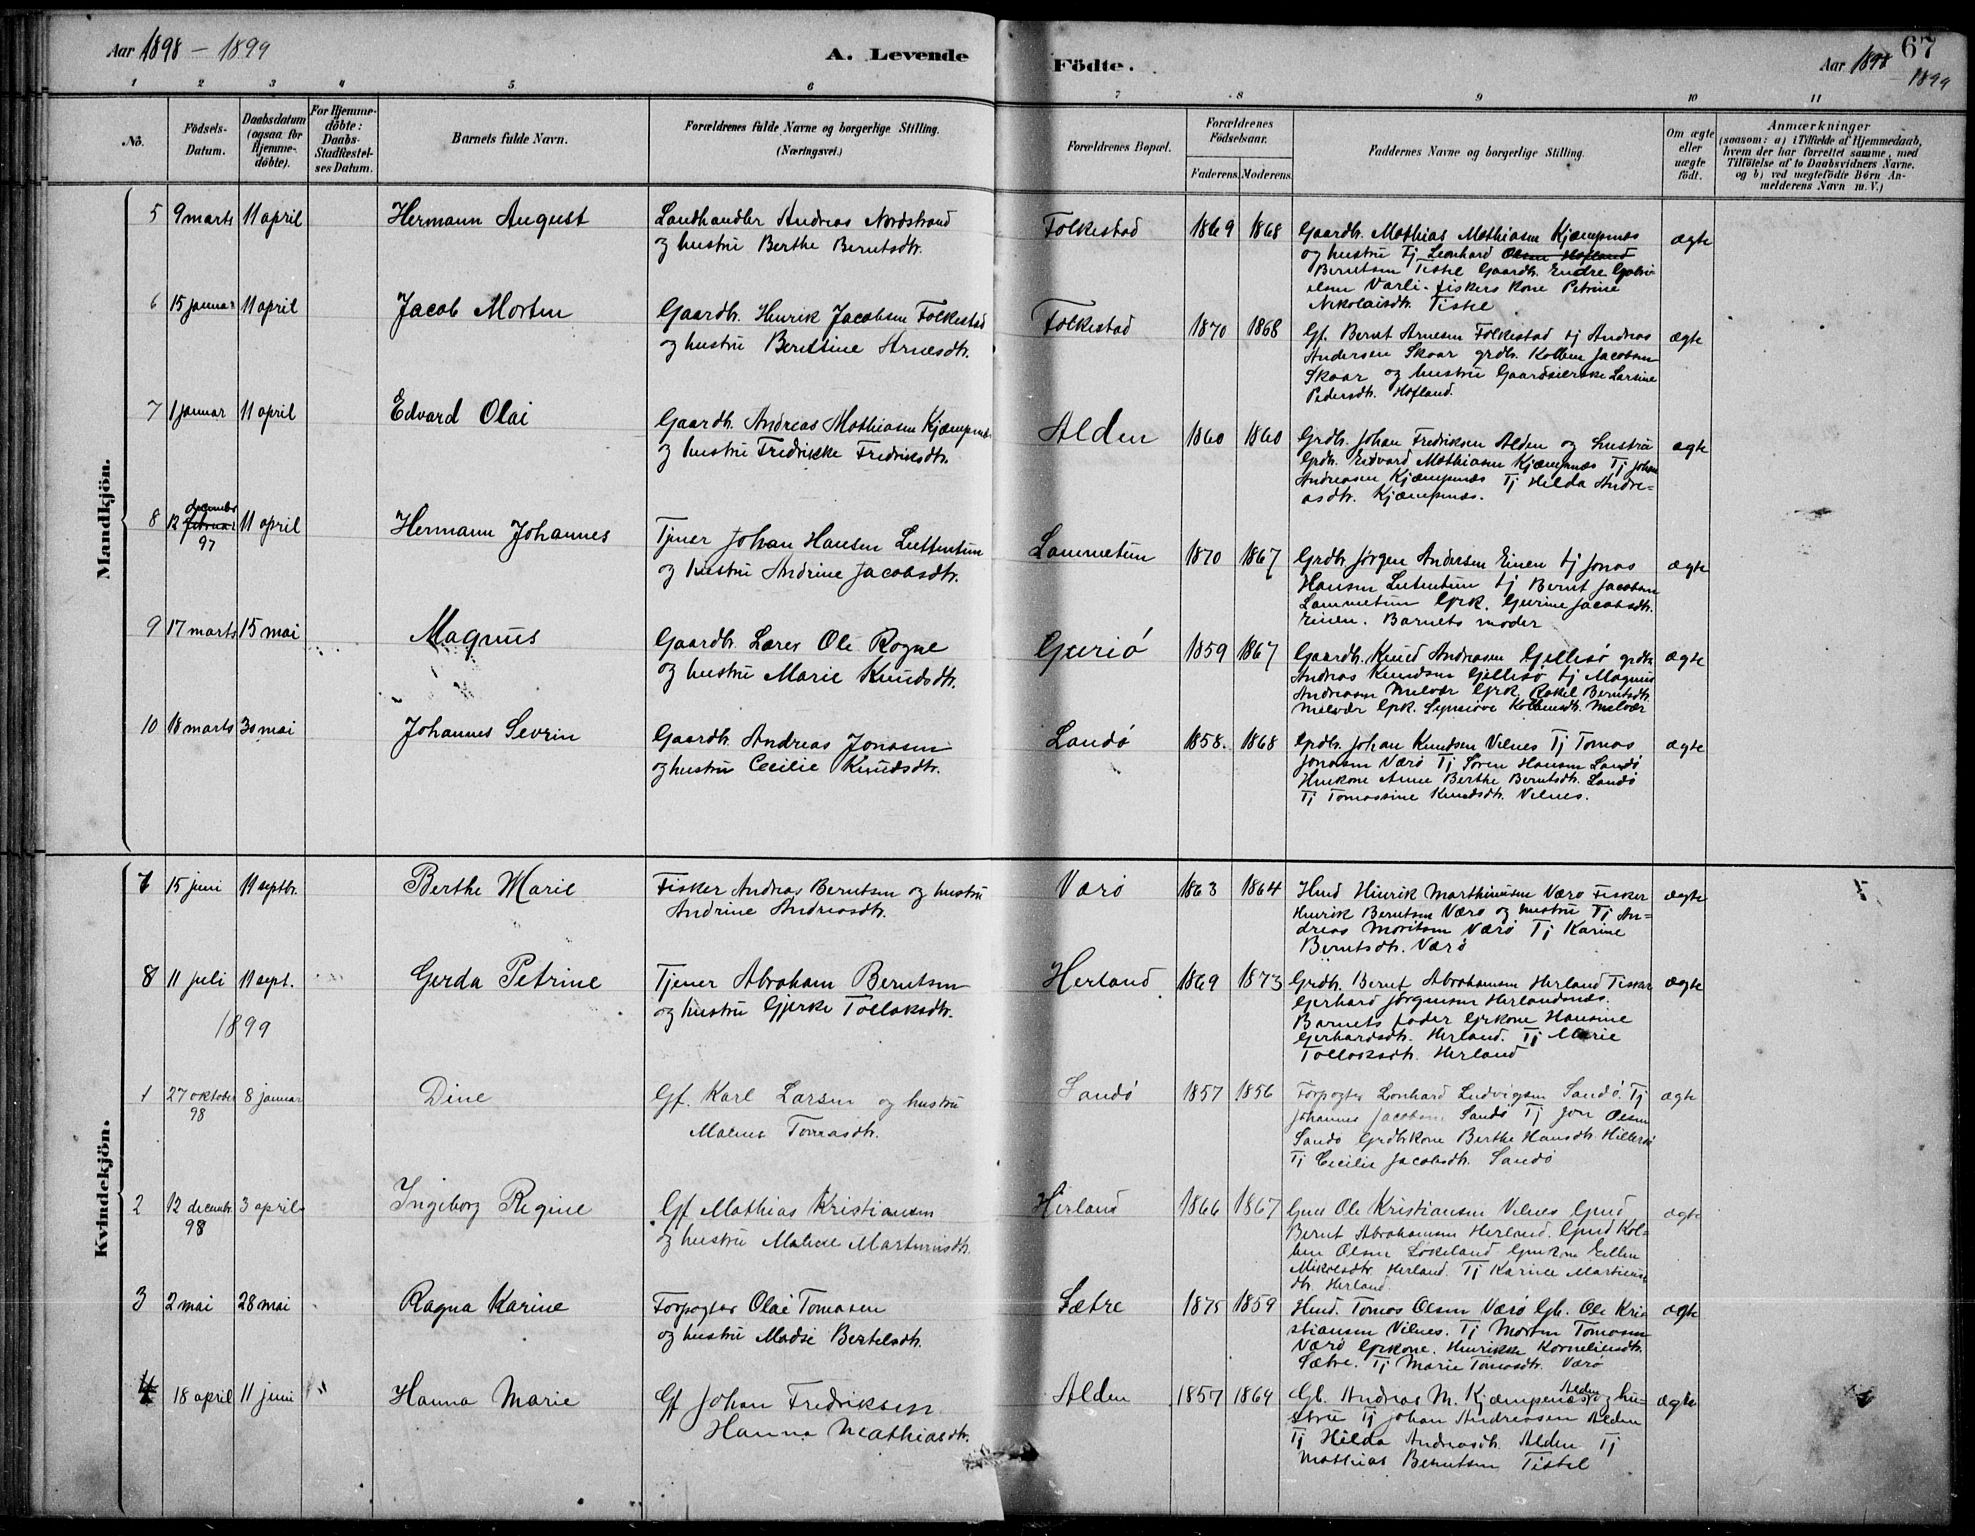 Aar 1898 – 1899
A. Levende Födte.
Aar 1898 67
1899
1 2 3 4 5 6 7 8 9 10 11
No.
Födsels-Datum.
Daabsdatum (ogsaa for Hjemme-döbte).
For Hjemme-döbte: Daabs-Stadfæstel-ses Datum.
Barnets fulde Navn.
Forældrenes fulde Navne og borgerlige Stilling.
(Næringsvei.)
Forældrenes Bopæl.
Forældrenes Födselsaar.
Faderens. Moderens.
Faddernes Navne og borgerlige Stilling.
Om ægte eller uægte födt.
Anmærkninger
(saasom: a) i Tilfælde af Hjemmedaab, hvem der har forrettet samme, med Tilföielse af to Daabsvidners Navne, og b) ved uægtefödte Börn An-melderens Navn m. V.)
Mandkjön.
5 9 marts 11 april Hermann August Landhandler Andreas Nordstrand
og hustru Berthe Berntsdtr.
Folkestad 1869 1868 Gaardb. Mathias Mathiasen Kjæmpnæs
og hustru Tj Leonhard Olsen Hofland
Berntsen Tistel Gaardb. Endre
Varli. fiskers kone Petrine
Nikolaisdtr. Tistel
ægte
6 15 januar 11 april Jacob Morten Gaardb. Henrik Jacobsen Folkestad
og hustru Berntine Arnesdtr.
Folkestad 1870 1868 Gf. Bernt Arnesen Folkestad tj Andreas
Andersen Skaar grdb. Kolben Jacobsen
Skaar og hustru Gaardeierske Larsine
Pedersdtr. Hofland.
ægte
7 1 januar 11 april Edvard Olai Gaardb. Andreas Mathiasen Kjæmpnæs
og hustru Fredrikke Fredriksdtr.
Alden 1860 1860 Grdb. Johan Fredriksen Alden og hustru
Grdb. Edvard Mathiasen Kjæmpnæs Tj Johan
Andreasen Kjæmpnæs Tj Hilda Andre-
asdtr. Kjæmpnæs.
ægte
8 12 februar december 97 11 april Hermann Johannes Tjener Johan Hansen Luttentun
og hustru Andrine Jacobsdtr.
Lammetun 1870 1867 Grdb. Jørgen Andersen Einen tj Jonas
Hansen Lutentun tj Bernt Jacobsen
Lammetun Grk. Gurine Jacobsdtr.
Einen. Barnets moder
ægte
9 17 marts 15 mai Magnus Gaardb. Lærer Ole Rogne
og hustru Marie Knudsdtr.
1859 1867 Gaardb. Knud Andreasen Gjellesø grdb.
Andreas Knudsen Gjellesø tj Magnus
Andreasen Melvær Grk. Rakel Berntsdtr.
Melvær Grk. Synnøve Kolbensdtr. Melvær
ægte
10 18 marts 30 mai Johannes Severin Gaardb. Andreas Jonasen
og hustru Cecilie Knudsdtr.
Landö 1858. 1868 Grdb. Johan Knudsen Vilnes Tj Tomas
Jonasen Værö Tj Sören Hansen Landö
Huskone Anne Berthe Berntsdtr. Landö
Tj Tomassine Knudsdtr. Vilnes.
ægte
Kvindekjön.
7 15 juni 11 septbr. Berthe Marie Fisker Andreas Berntsen og hustru
Andrine Andreasdtr.
Værö 1863 1864 Hmd Hinrik Marthinusen Værö Fisker
Hinrik Berntsen Værö og hustru Tj An-
dreas Moritsen Værö Tj Karine
Berntsdtr. Værö
ægte
8 11 juli 11 sept. Gerda Petrine Tjener Abraham Berntsen
og hustru Gjerke Tollaksdtr.
Herland 1869 1873 Grdb. Bernt Abrahamsen Herland Fisker
Gerhard Jørgensen Herlandsnæs.
Barnets fader Grkone Hansine
Gerhardsdtr. Herland. Tj Marie
Tollaksdtr. Herland
ægte
1899
1 27 oktober 98 8 januar Dine Gf. Karl Larsen og hustru
Malene Tomasdtr.
Sandö 1857 1856 Forpagter Leonhard Ludvigsen Sandö. Tj
Johannes Jacobsen Sandö Tj Jon Olsen
Sandö Grdbkone Berthe Hansdtr. Hillersö
Tj Cecilie Jacobsdtr. Sandö
ægte
2 12 decembr. 98 3 april Ingeborg Regine Gf Mathias Kristiansen
og hustru Malene Martinusdtr.
Herland 1866 1867 Gmd Ole Kristiansen Vilnes Gmd
Bernt Abrahamsen Herland. Gmd Kol-
ben Olsen Løkeland Gmkone Ellen
Mikkelsdtr. Herland. Tj Karine Martinus-
dtr. Herland.
ægte
3 2 mai 28 mai Ragna Karine Forpagter Olai Tomasen
og hustru Madse Bertelsdtr.
Sætre 1875 1859 Hmd. Tomas Olsen Værö Gb. Ole Kris-
stiansen Vilnes. Tj Morten Tomasen
Værö Grkone. Henrikke Korneliusdtr.
Sætre. Tj Marie Tomasdtr. Værö
ægte
4 18 april 11 juni " Hanna Marie Gf Johan Fredriksen
Hanna Mathiasdtr.
Alden 1857 1864 Gb. Andreas M. Kjæmpenæs Alden og hu-
stru Tj Johan Andreasen Alden
Tj Hilda Andreasdtr. Alden Tj
Mathias Berntsen Tistel
ægte